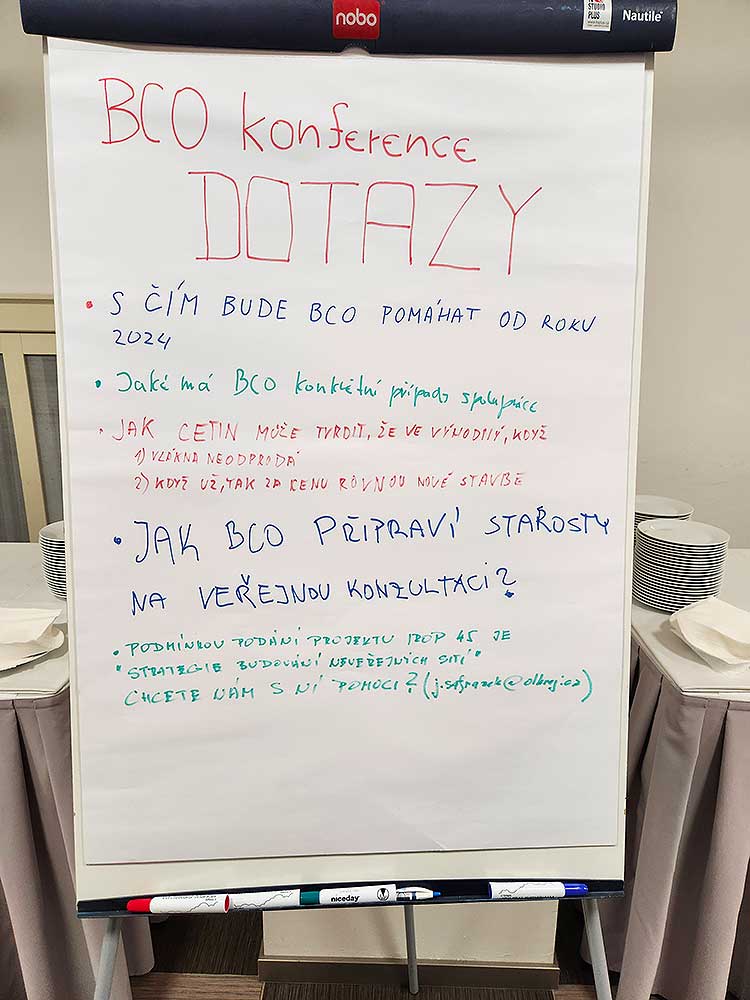 nobo
STUDIO
PLUS
Nautile
BCO konference
DOTAZY
• S ČÍM BUDE BCO POMÁHAT OD ROKU
2024
• Jaké má BCO konkrétní případy spolupráce
• JAK CETIN MŮŽE TVRDIT, ŽE VE VÝHODNÝ, KDYŽ
1) VLÁKNA NEODPRODÁ
2) KDYŽ UŽ, TAK ZA CENU ROVNOU NOVÉ STAVBĚ
• JAK BCO PŘIPRAVÍ STAŘOSTY
NA VEŘEJNOU KONZULTACI?
• PODMÍNKOU PODÁNÍ PROJEKTU IROP 45 JE
"STRATEGIE BUDOVÁNÍ NEVEŘEJNÝCH SITÍ"
CHCETE NÁM S NÍ POMOCI? (j.safranek@olkraj.cz)
niceday